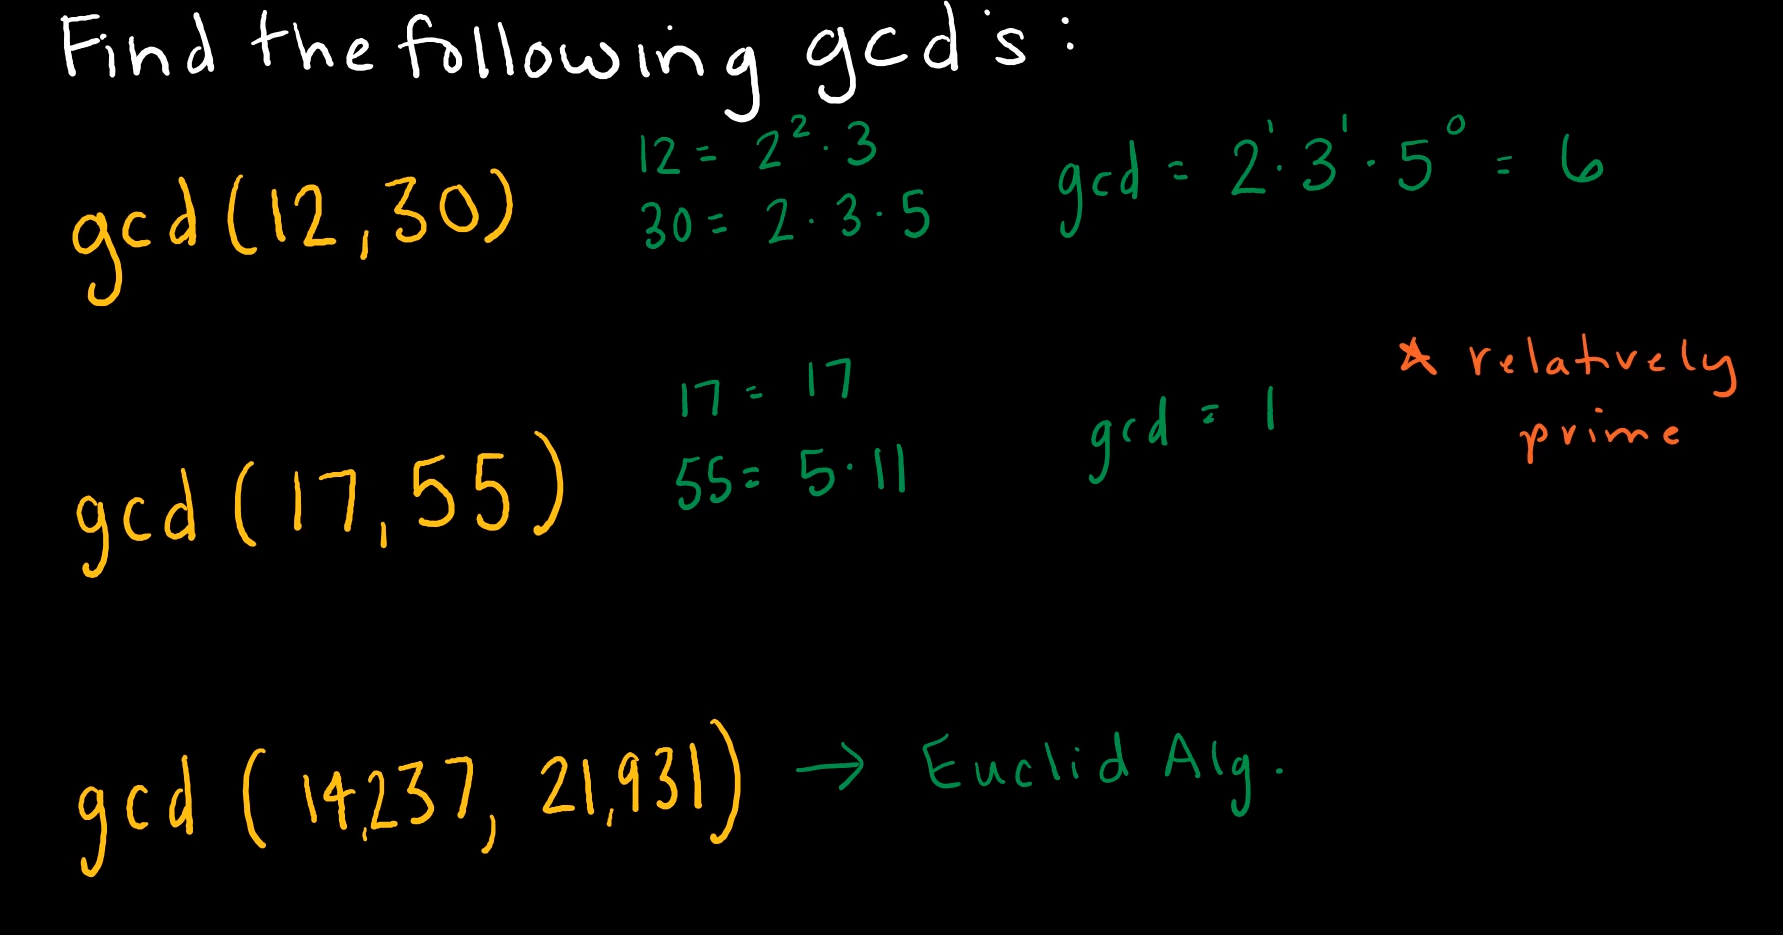 Find the following gcd's:
gcd(12,30)
12 = 2² · 3
30 = 2 · 3 · 5
gcd = 2¹ · 3¹ · 5⁰ = 6
gcd(17,55)
17 = 17
55 = 5 · 11
gcd = 1
★ relatively
prime
gcd(14,237, 21,931) → Euclid Alg.